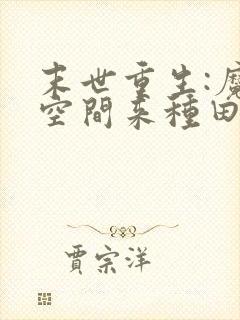 末世重生:魔
空間来種田
賈宗洋